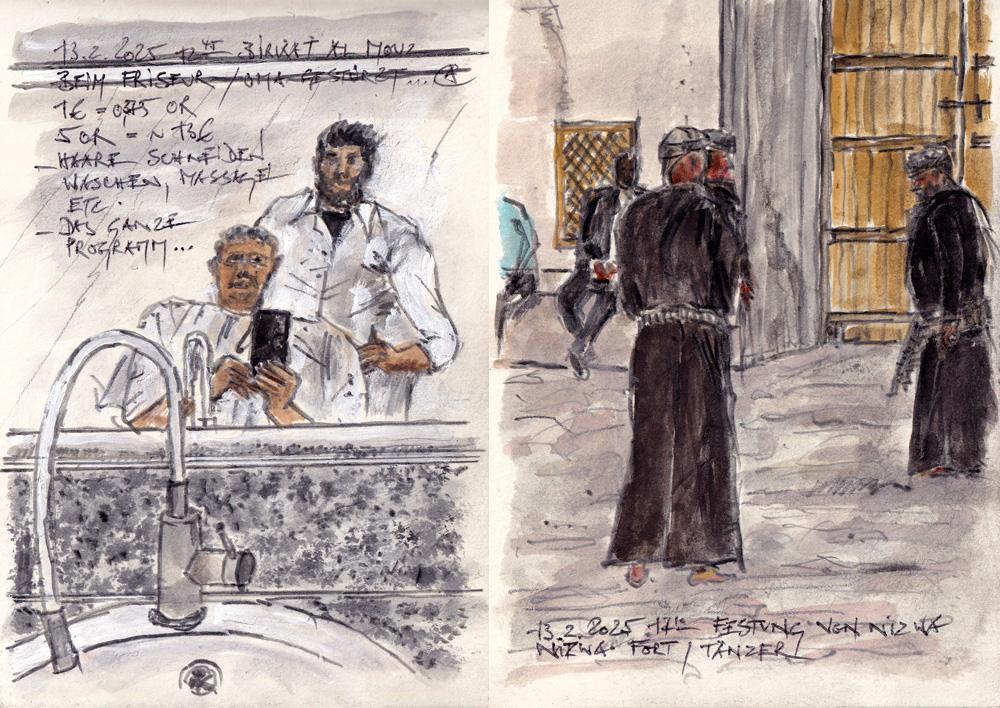 13.2.2025 12⁴⁵ BIRKAT AL MOUZ
BEIM FRISEUR / OMA GESTÜRZT...
1€ = 0,375 OR
5 OR = ~ 13€
– HAARE SCHNEIDEN,
WASCHEN, MASSAGE
ETC.
– DAS GANZE
PROGRAMM...
13.2.2025 17¹⁰ FESTUNG VON NIZWA
NIZWA FORT / TÄNZER